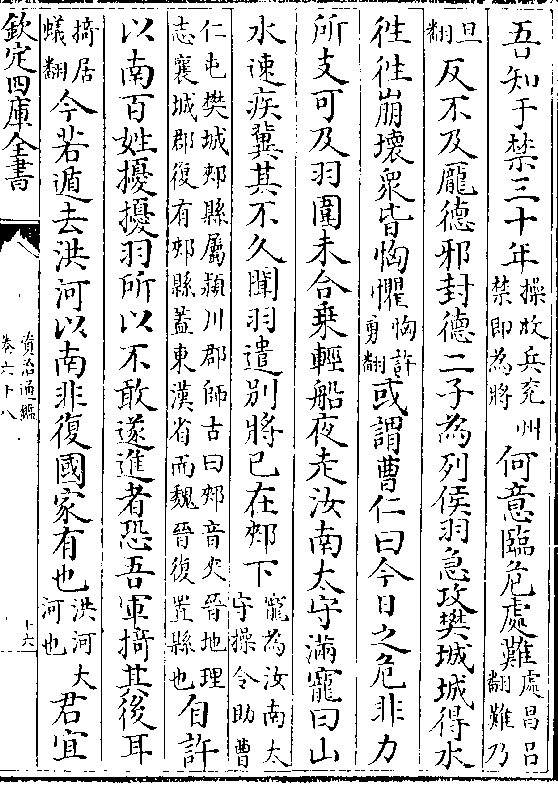 吾知于禁三十年操收兵兖州禁即為將何意臨危處難處昌吕翻難乃
旦翻反不及龐德邪封德二子為列侯羽急攻樊城城得水
徃徃崩壞衆皆恟懼恟許勇翻或謂曹仁曰今日之危非力
所支可及羽圍未合乗輕船夜走汝南太守滿寵曰山
水速疾冀其不久聞羽遣别將已在郟下寵為汝南太守操令助曹
仁屯樊城郟縣屬潁川郡師古曰郟音夾晉地理志襄城郡復有郟縣蓋東漢省而魏晉復置縣也自許
以南百姓擾擾羽所以不敢遂進者恐吾軍掎其後耳
掎居蟻翻今若遁去洪河以南非復國家有也洪河大河也君宜
欽定四庫全書
資治通鑑
卷六十八
十六